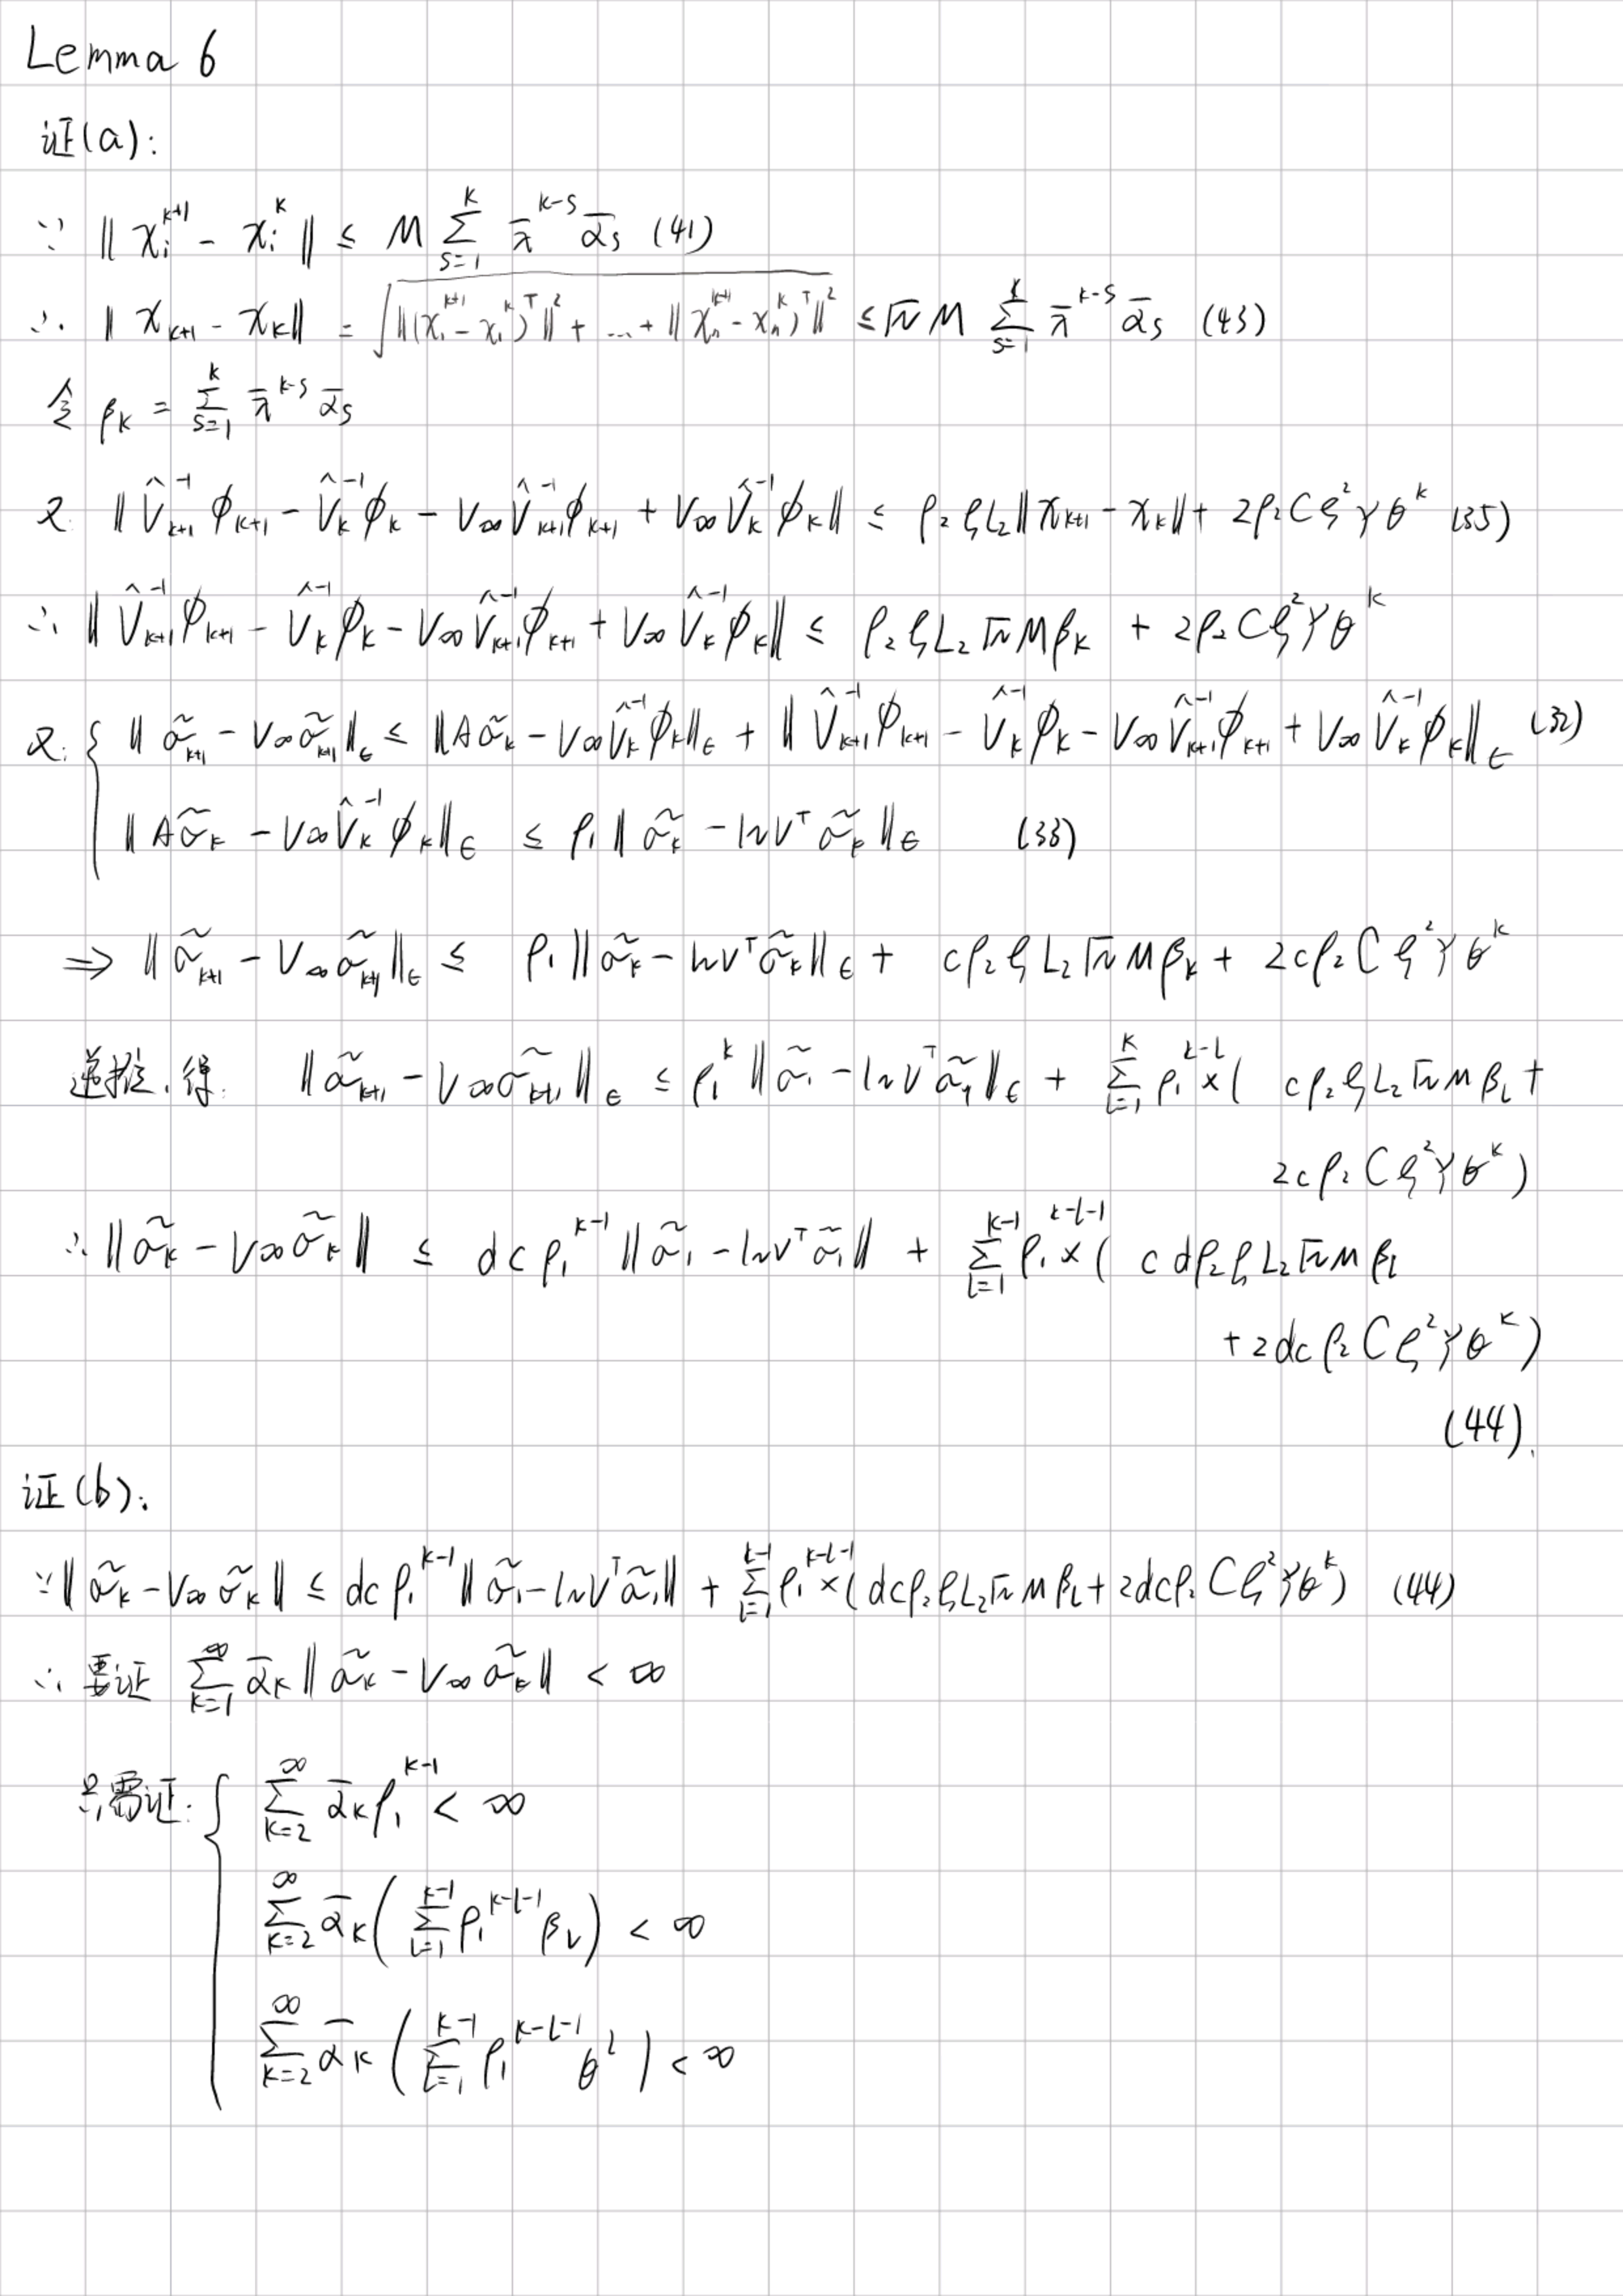 Lemma 6
证(a):
∵ ‖x_i^{k+1} - x_i^k‖ ≤ M Σ_{s=1}^{k} λ̄^{k-s} ᾱ_s (41)
∴ ‖x_{k+1} - x_k‖ = √(‖(x_1^{k+1} - x_1^k)^T‖² + ... + ‖x_n^{k+1} - x_n^k)^T‖²) ≤ √n M Σ_{s=1}^{k} λ̄^{k-s} ᾱ_s (43)
令 β_k = Σ_{s=1}^{k} λ̄^{k-s} ᾱ_s
又 ‖V̂_{k+1}^{-1} ϕ_{k+1} - V̂_k^{-1} ϕ_k - V_∞ V̂_{k+1}^{-1} ϕ_{k+1} + V_∞ V̂_k^{-1} ϕ_k‖ ≤ ρ_2 ζ L_2 ‖x_{k+1} - x_k‖ + 2ρ_2 C ζ² γ θ^k (35)
∴ ‖V̂_{k+1}^{-1} ϕ_{k+1} - V̂_k^{-1} ϕ_k - V_∞ V̂_{k+1}^{-1} ϕ_{k+1} + V_∞ V̂_k^{-1} ϕ_k‖ ≤ ρ_2 ζ L_2 √n M β_k + 2ρ_2 C ζ² γ θ^k
又: { ‖σ̃_{k+1} - V_∞ σ̃_{k+1}‖_ϵ ≤ ‖A σ̃_k - V_∞ V̂_k^{-1} ϕ_k‖_ϵ + ‖V̂_{k+1}^{-1} ϕ_{k+1} - V̂_k^{-1} ϕ_k - V_∞ V̂_{k+1}^{-1} ϕ_{k+1} + V_∞ V̂_k^{-1} ϕ_k‖_ϵ (32)
‖A σ̃_k - V_∞ V̂_k^{-1} ϕ_k‖_ϵ ≤ ρ_1 ‖σ̃_k - 1_n v^T σ̃_k‖_ϵ (33)
⇒ ‖σ̃_{k+1} - V_∞ σ̃_{k+1}‖_ϵ ≤ ρ_1 ‖σ̃_k - 1_n v^T σ̃_k‖_ϵ + cρ_2 ζ L_2 √n M β_k + 2cρ_2 C ζ² γ θ^k
递推,得: ‖σ̃_{k+1} - V_∞ σ̃_{k+1}‖_ϵ ≤ ρ_1^k ‖σ̃_1 - 1_n v^T σ̃_1‖_ϵ + Σ_{l=1}^{k} ρ_1^{k-l} × ( cρ_2 ζ L_2 √n M β_l +
2cρ_2 C ζ² γ θ^k)
∴ ‖σ̃_k - V_∞ σ̃_k‖ ≤ dc ρ_1^{k-1} ‖σ̃_1 - 1_n v^T σ̃_1‖ + Σ_{l=1}^{k-1} ρ_1^{k-l-1} × ( c d ρ_2 ζ L_2 √n M β_l
+ 2dc ρ_2 C ζ² γ θ^k)
(44).
证(b):
∵ ‖σ̃_k - V_∞ σ̃_k‖ ≤ dc ρ_1^{k-1} ‖σ̃_1 - 1_n v^T σ̃_1‖ + Σ_{l=1}^{k-1} ρ_1^{k-l-1} × (dcρ_2 ζ L_2 √n M β_l + 2dcρ_2 C ζ² γ θ^k) (44)
∴ 要证 Σ_{k=1}^{∞} ᾱ_k ‖σ̃_k - V_∞ σ̃_k‖ < ∞
只需证: { Σ_{k=2}^{∞} ᾱ_k ρ_1^{k-1} < ∞
Σ_{k=2}^{∞} ᾱ_k ( Σ_{l=1}^{k-1} ρ_1^{k-l-1} β_l ) < ∞
Σ_{k=2}^{∞} ᾱ_k ( Σ_{l=1}^{k-1} ρ_1^{k-l-1} θ^l ) < ∞